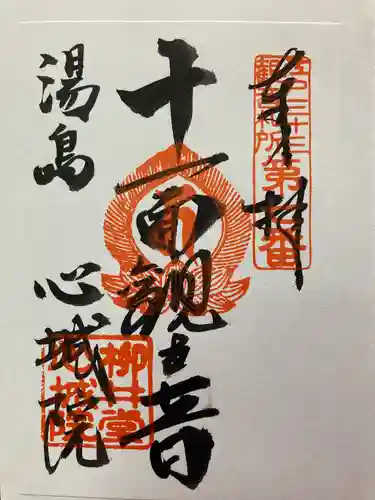 奉拝
江戸三十三
観音札所
第七番
十一面観音
湯島 心城院
柳井堂
心城院